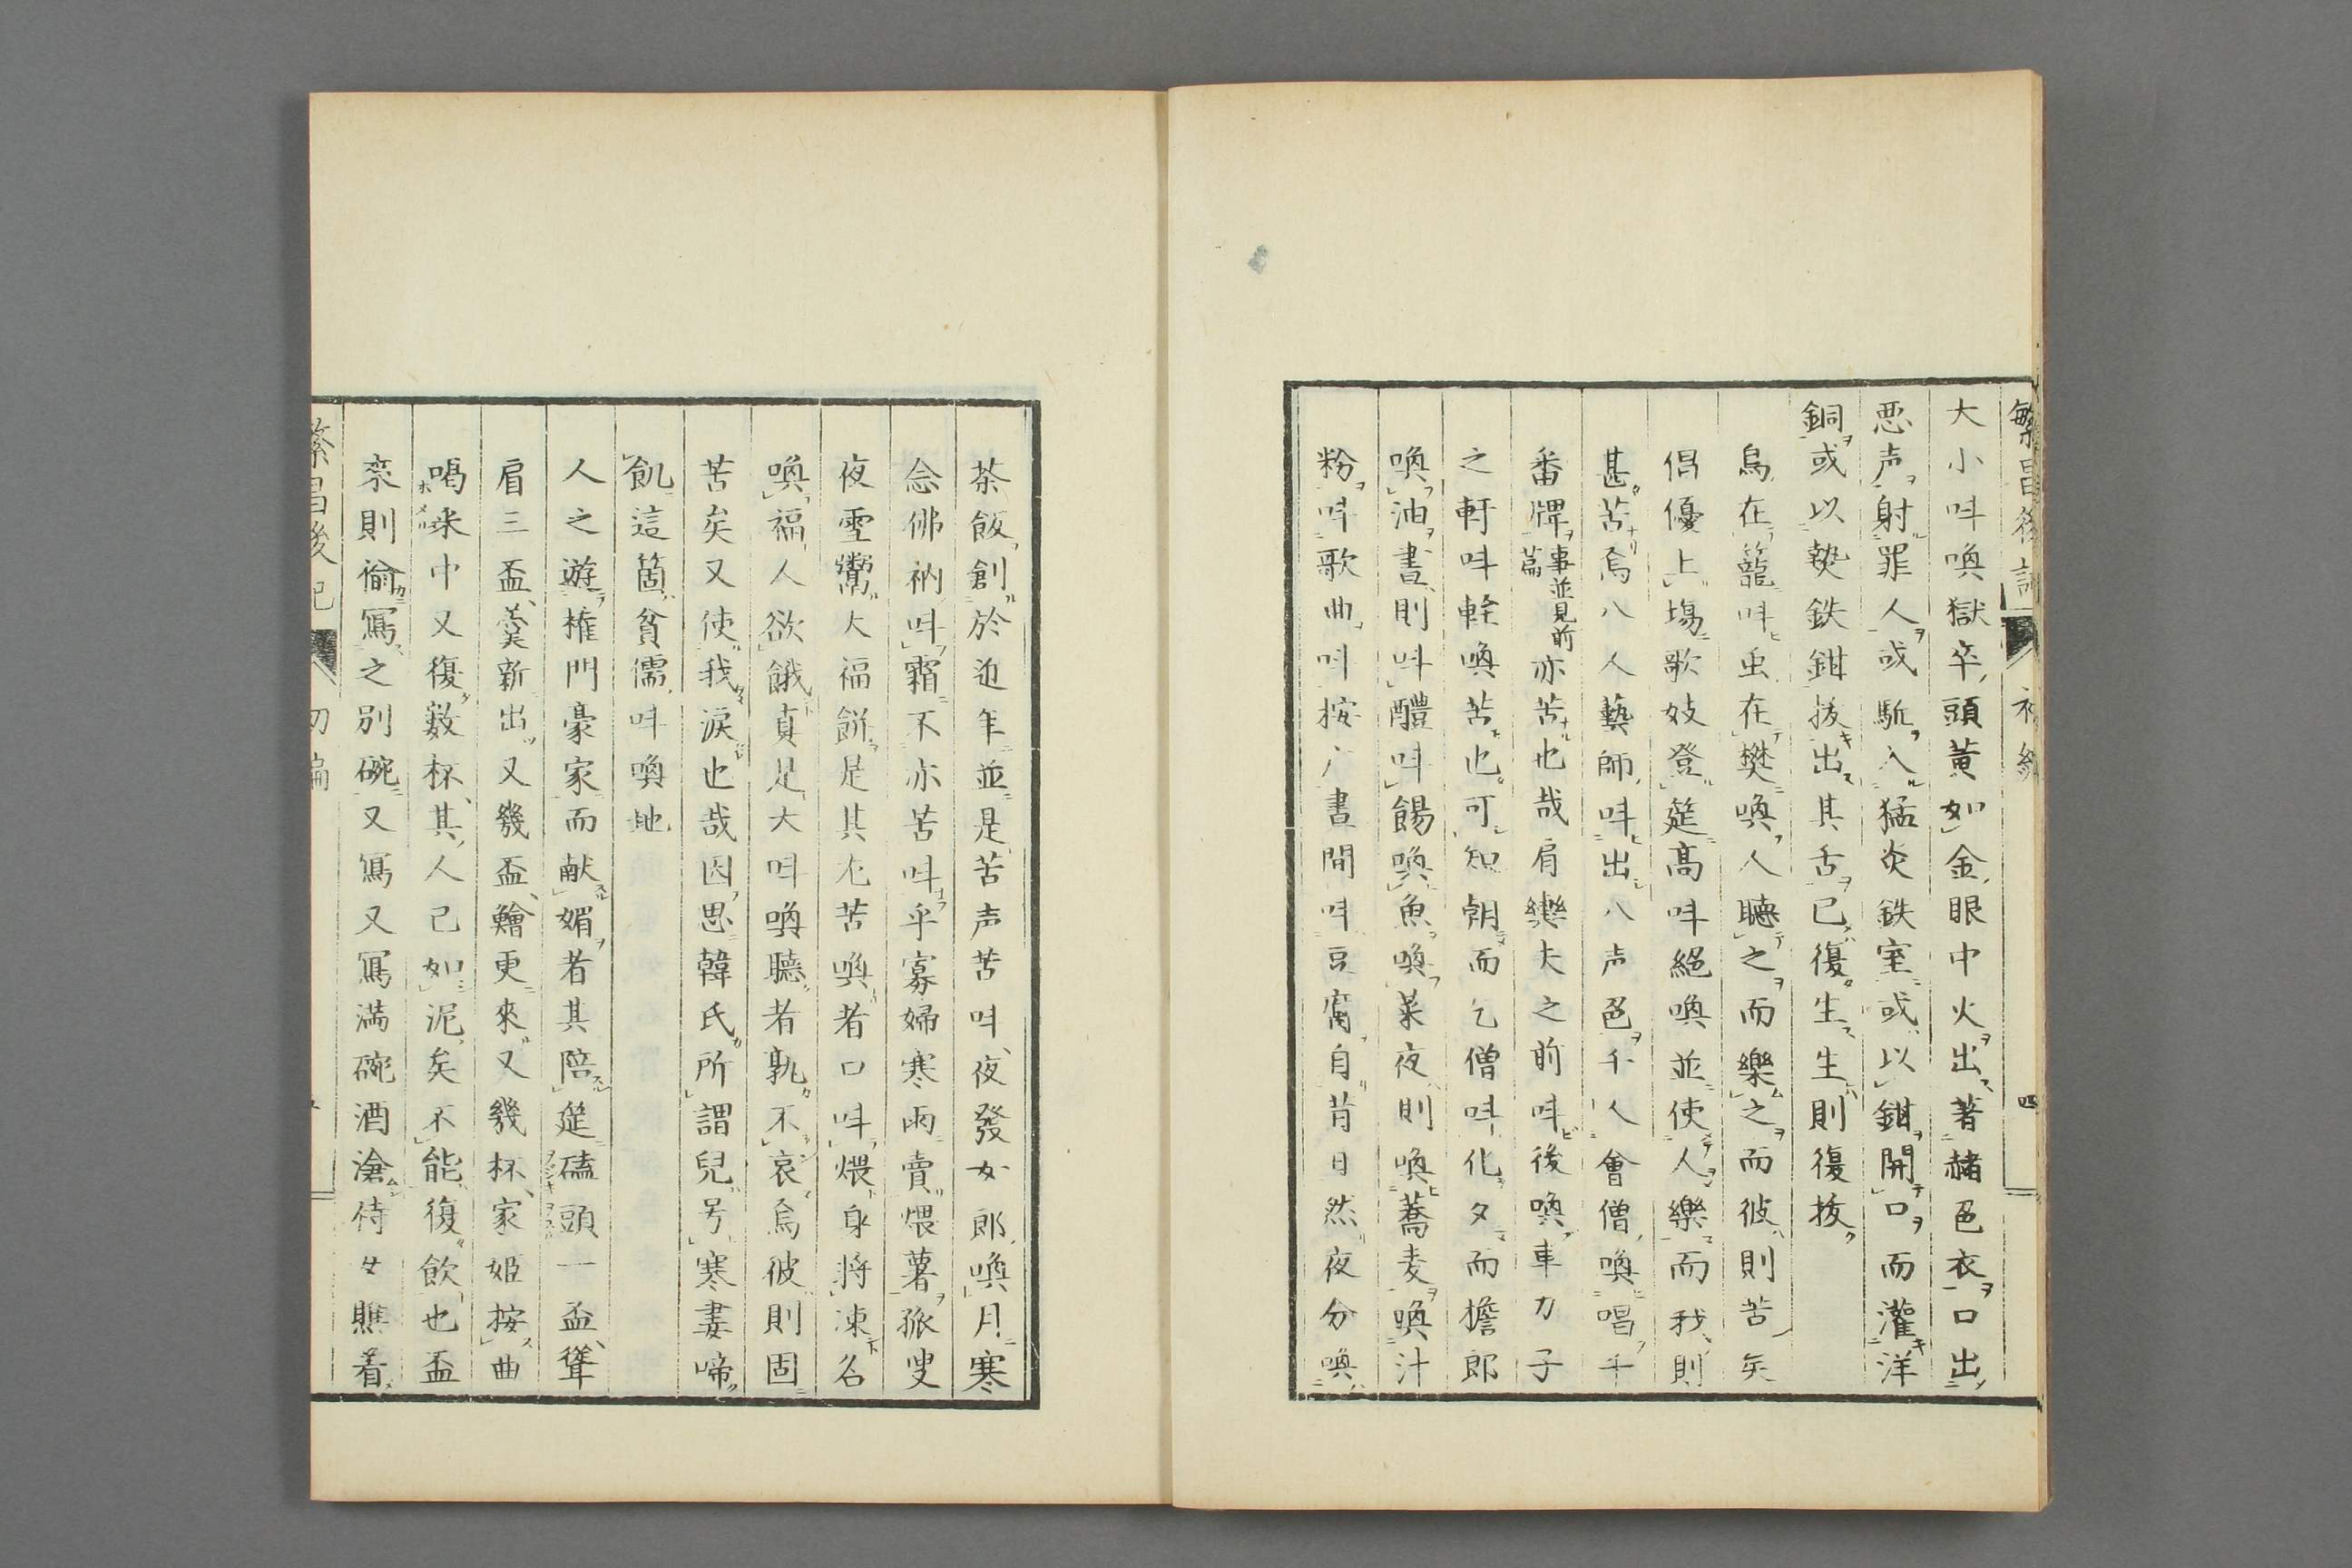 繁昌後記 初編 四
大小呌喚獄卒頭黃如金眼中火出著赭色衣口出
悪声射罪人或駈入猛炎鉄室或以鉗開口而灌洋
銅或以熱鉄鉗抜出其舌已復生生則復抜
鳥在籠呌虫在樊喚人聽之而樂之而彼則苦矣
倡優上場歌妓登筵高呌絕喚並使人樂而我則
甚苦焉八人藝師呌出八声色千人會僧喚唱千
番牌事並見前篇亦苦也哉肩轝夫之前呌後喚車力子
之軒呌輊喚苦也可知朝而乞僧呌化夕而擔郎
喚油晝則呌醴呌餳喚魚喚菜夜則喚蕎麦喚汁
粉呌歌曲呌按广晝間呌豆腐自昔日然夜分喚
茶飯創於近年並是苦声苦呌夜發女郎喚月寒
念佛衲呌霜不亦苦呌乎寡婦寒雨賣煨薯孤叟
夜雪鬻大福餅是其尤苦喚者口呌煨身將凍名
喚福人欲餓真是大呌喚聽者孰不哀焉彼則固
苦矣又使我淚也哉因思韓氏所謂兒号寒妻啼
飢這箇貧儒呌喚地
人之遊権門豪家而献媚者其陪筵磕頭一盃聳
肩三盃羹新出又幾盃鱠更來又幾杯家姬按曲
喝釆中又復數杯其人已如泥矣不能復飲也盃
來則偷寫之別碗又寫又寫満碗酒滄侍女瞧着
繁昌後記 初編